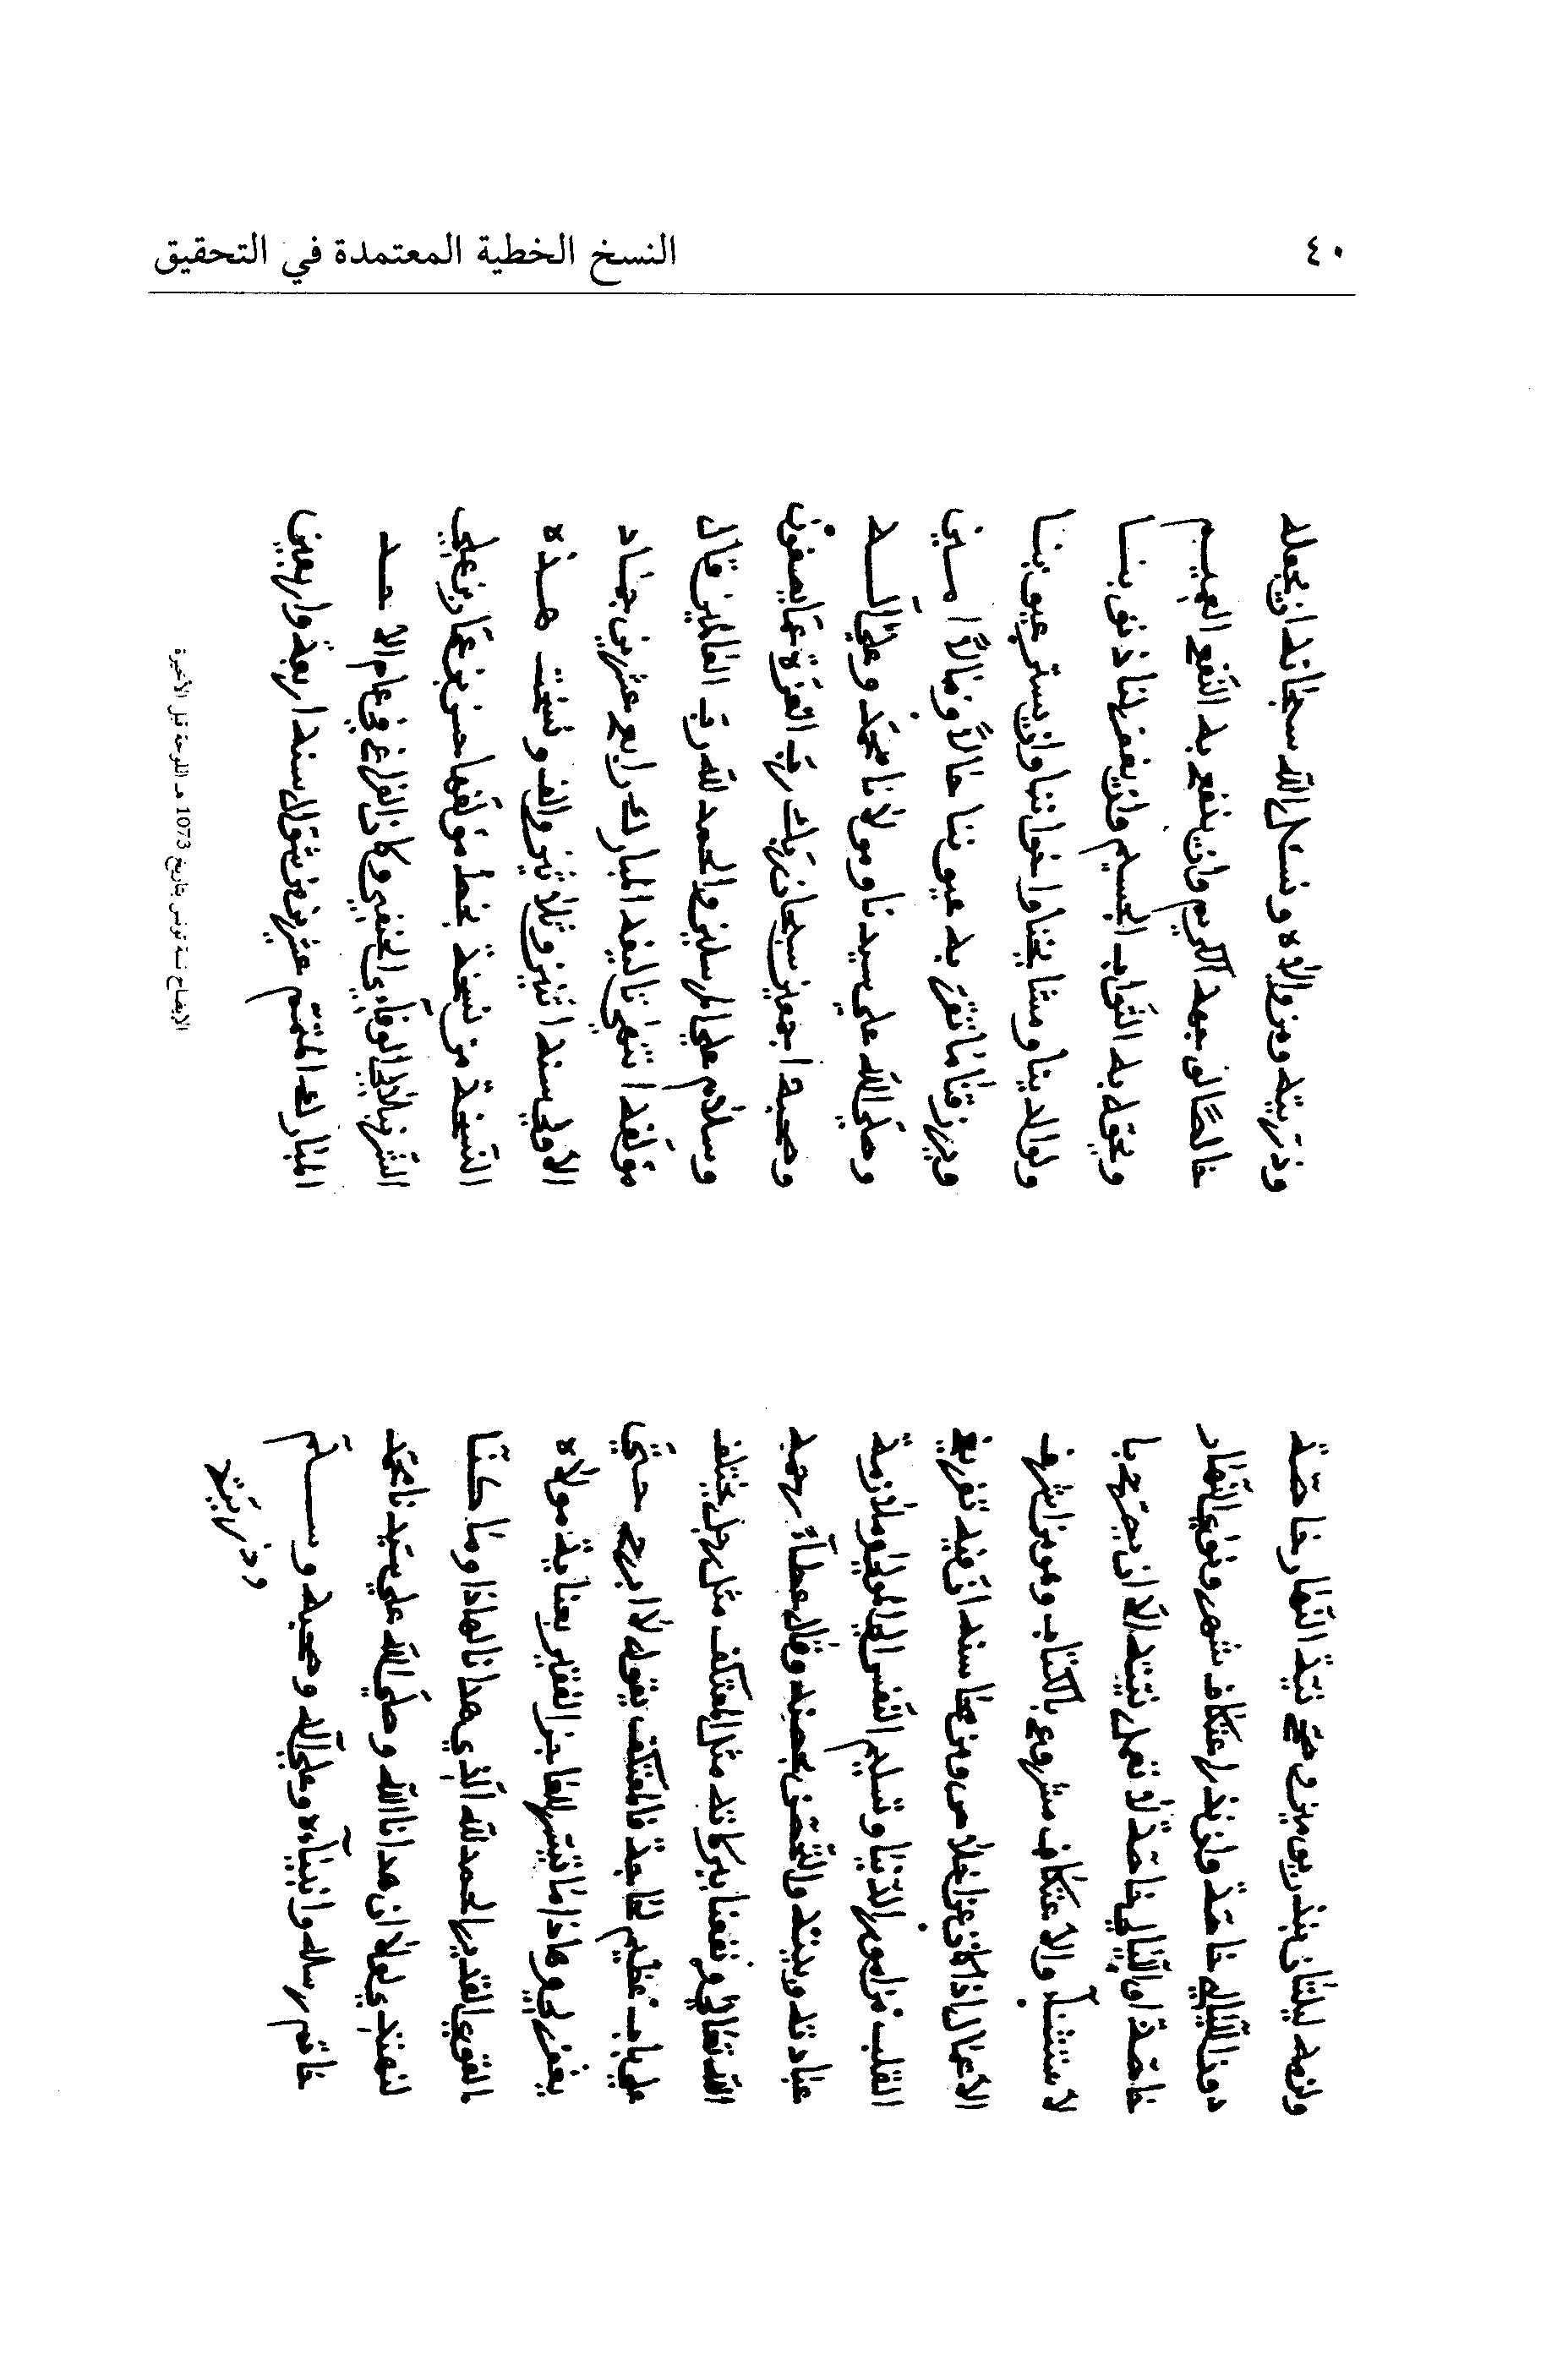 ٤٠
النسخ الخطية المعتمدة في التحقيق
ولزمه ليلتان بنذر يومين وصحّ نيّة النّهار خاصّة
دون اللّيالي خاصّة وان نذر اعتكاف شهر ونوى النّهار
خاصّة او اللّيالي خاصّة لا تعمل نيّته الّا ان يصرّح با
لاستثناء والاعتكاف مشروع بالكتاب وهو من اشرف
الاعمال اذا كان عن اخلاص ومن محاسنه ان فيه تفريغ
القلب من امور الدّنيا وتسليم النّفس الى المولى وملازمة
عبادته وبيته والتّحصّن بحصنه وقال عطاء رحمه
الله تعالى ونفعنا ببركاته مثل المعتكف مثل رجل يختلف
على باب عظيم لحاجة فالمعتكف يقول لا ابرح حتّى
يغفر لي وهاذا ما تيسّر للعاجز الفقير بعناية مولاه
القوي القدير الحمد لله الّذي هدانا لهاذا وما كنّا
لنهتدي لولا ان هدانا الله وصلّى الله على سيّدنا محمّد
خاتم رسله وانبياءه وعلى آله وصحبه وسلّم
وذريّته
وذريّته ومن والاه ونسئل الله سبحانه ان يجعله
خالصًا لوجهه الكريم وان ينفع به النّفع العميم
ويجزل به الثّواب الجسيم وان يغفر لنا ذنوبنا
ولوالدينا ومشايخنا واخواننا وان يستر عيوبنا
ويرزقنا ما تقرّ به عيوننا حالاً ومآلاً امين
وصلّى الله على سيدنا ومولانا محمّد وعلى آله
وصحبه اجمعين سبحان ربّك ربّ العزّة عمّا يصفون
وسلام على المرسلين والحمد لله ربّ العالمين قال
مؤلّفه انتهى تاليفه المبارك رابع عشرين جماد
الأولى سنه اثنين وثلاثين والف ونسخت هذه
النّسخة من نسخة بخط مؤلّفها حسن بن عمّار بن علي
الشّرنبلالي الوفاءي الحنفي وكان الفراغ في عام الاحد
المبارك المتمّم عشرين من شوّال سنه اربعة واربعين
الإيضاح نسخة تونس بتاريخ 1073 هـ اللوحة قبل الأخيرة